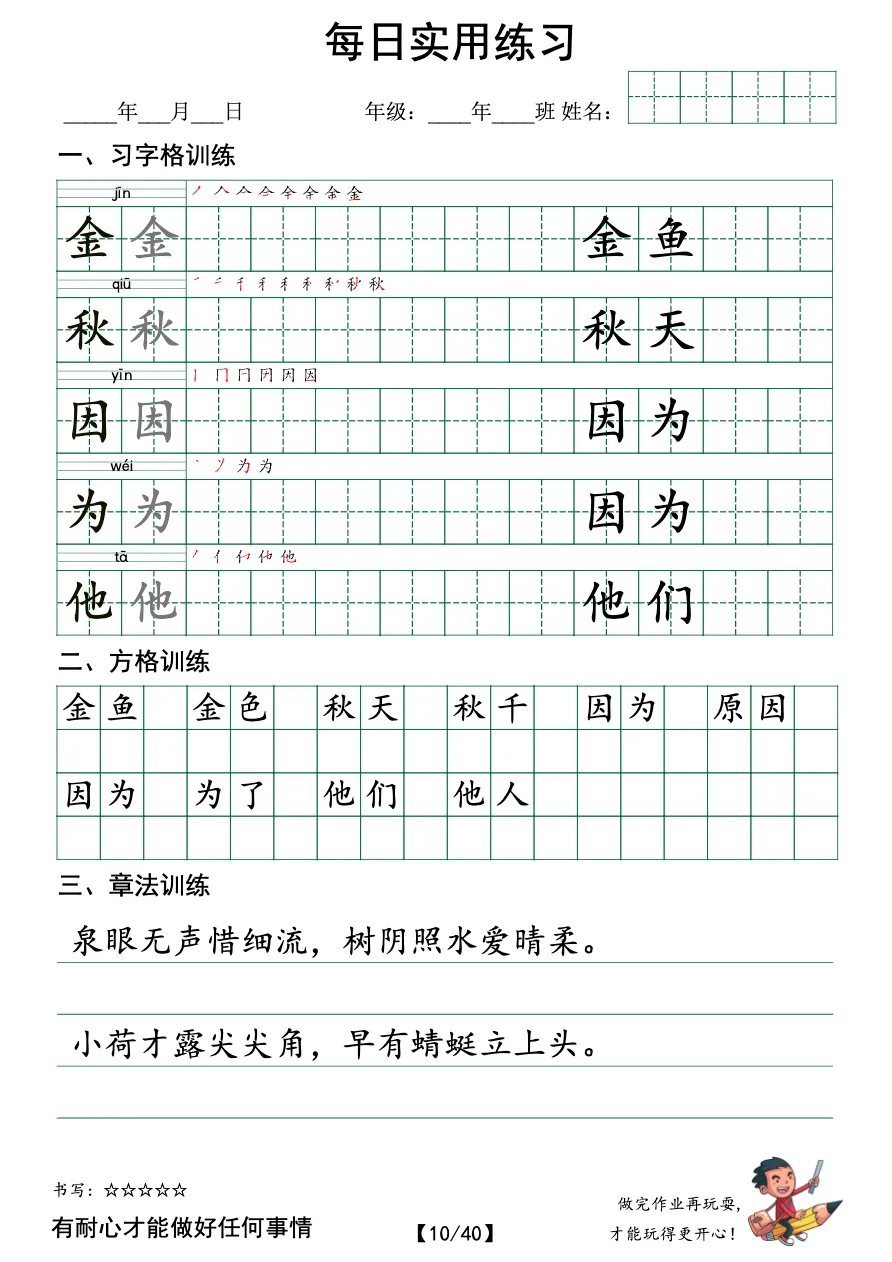 每日实用练习
_____年___月___日 年级：____年____班 姓名：
一、习字格训练
jīn
金 金 金 鱼
qiū
秋 秋 秋 天
yīn
因 因 因 为
wéi
为 为 因 为
tā
他 他 他 们
二、方格训练
金 鱼 金 色 秋 天 秋 千 因 为 原 因
因 为 为 了 他 们 他 人
三、章法训练
泉眼无声惜细流，树阴照水爱晴柔。
小荷才露尖尖角，早有蜻蜓立上头。
书写：☆☆☆☆☆
有耐心才能做好任何事情
【10/40】
做完作业再玩耍，
才能玩得更开心！